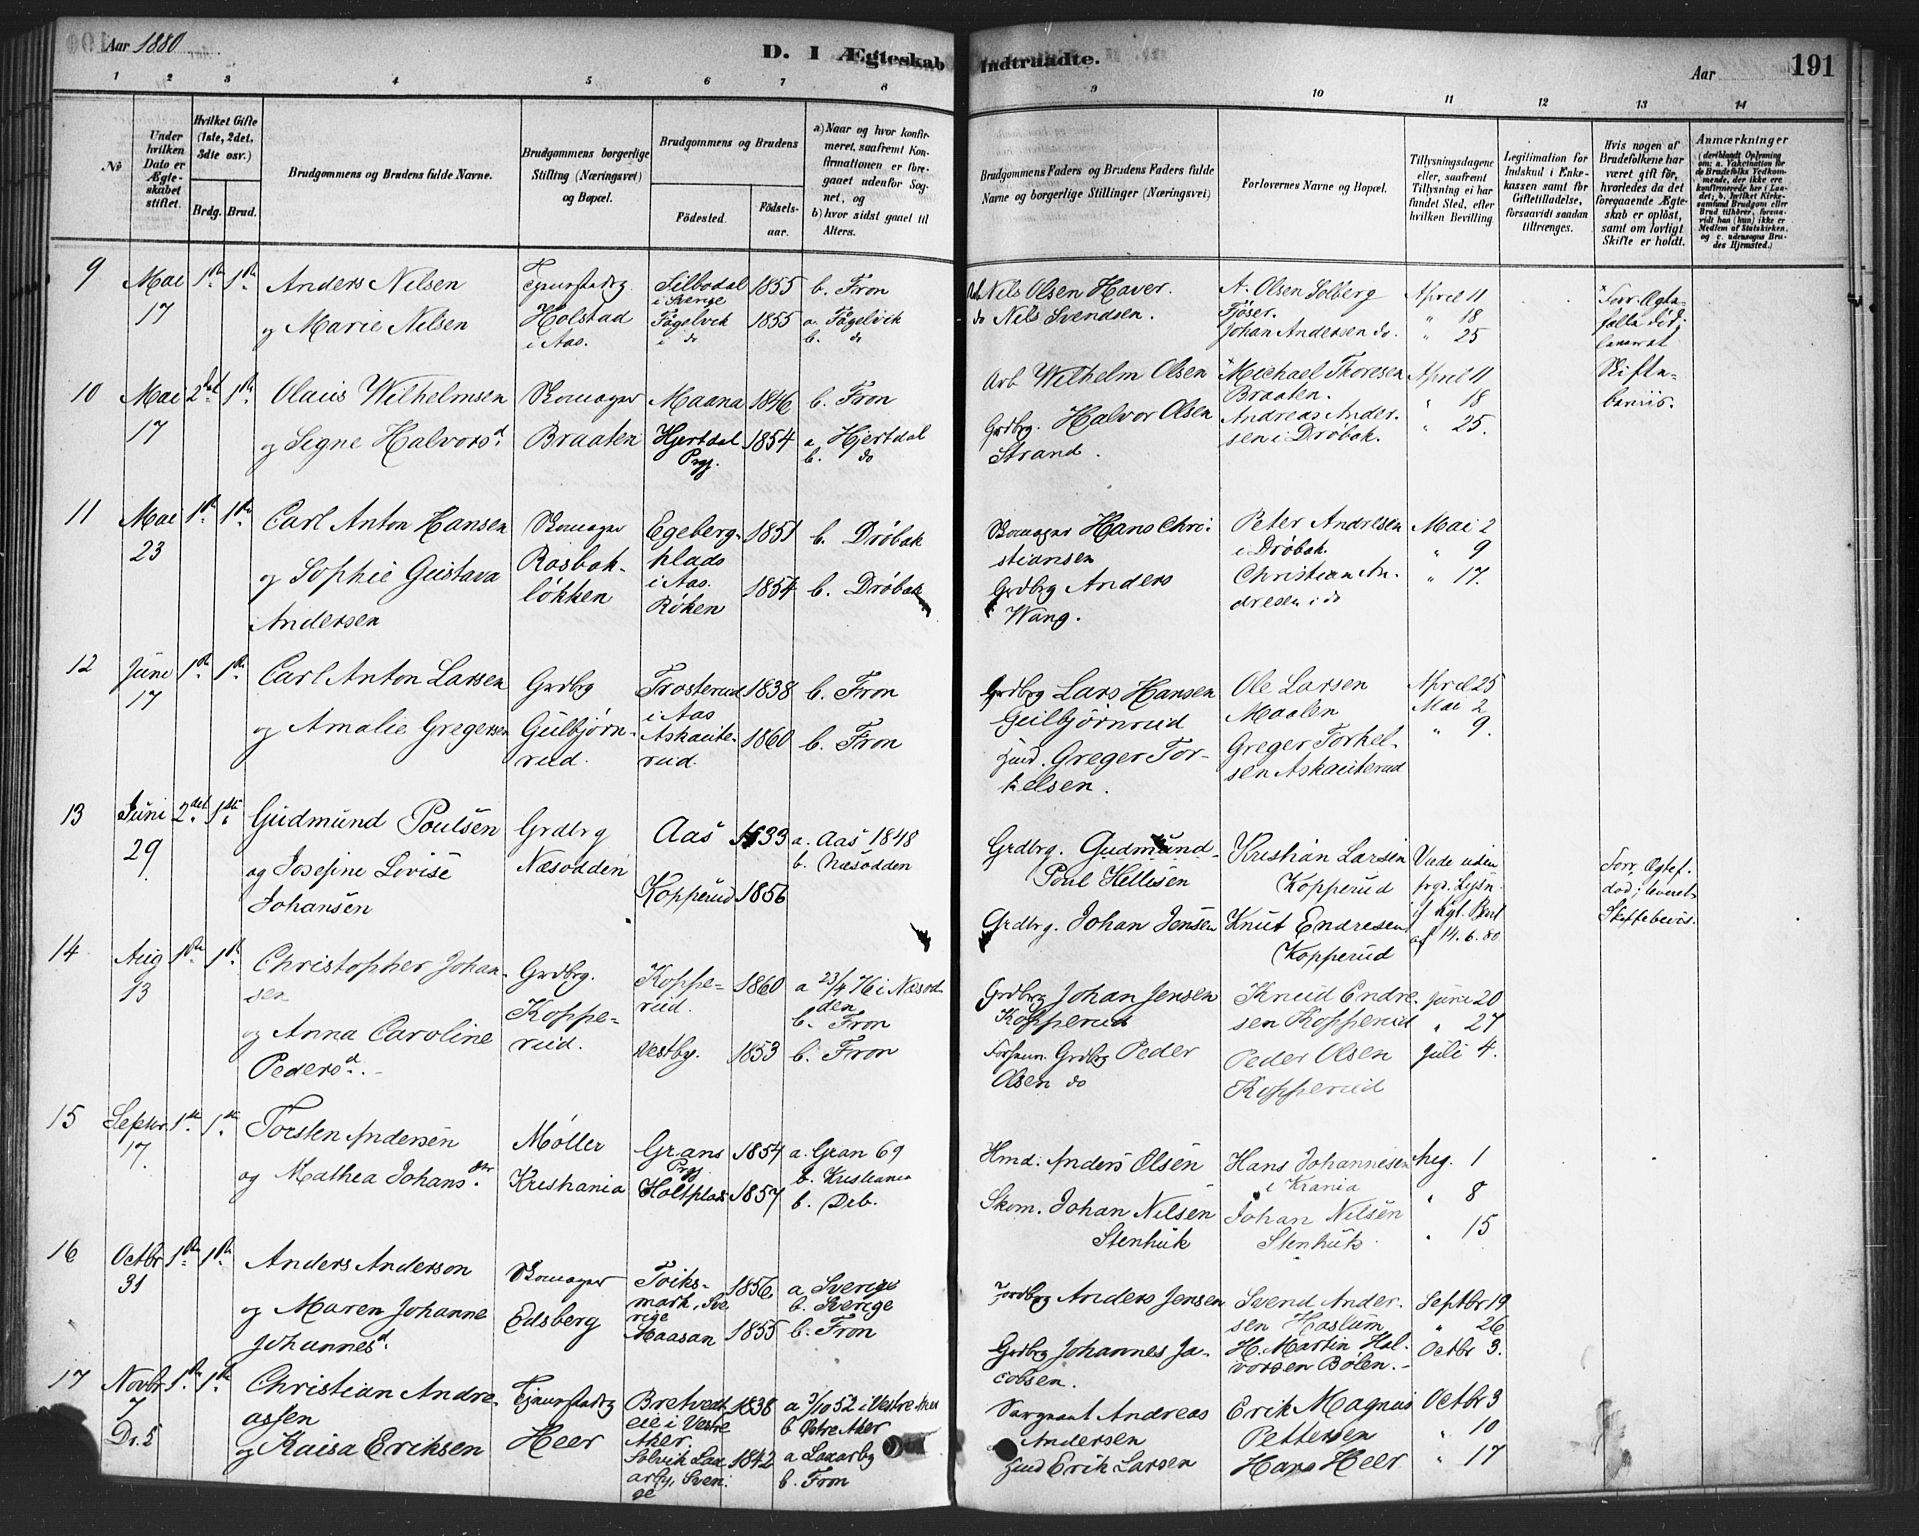 Aar 1880.
D. I Ægteskab Indtraadte.
Aar 191
1 2 3 4 5 6 7 8 9 10 11 12 13 14
No
Under hvilken Dato er Ægteskabet stiftet.
Hvilket Gifte (1ste, 2det, 3die osv.)
Brdg. Brud.
Brudgommens og Brudens fulde Navne.
Brudgommens borgerlige Stilling (Næringsvei) og Bopæl.
Brudgommens og Brudens
Fødested. Fødselsaar.
a) Naar og hvor konfirmeret, saafremt Konfirmationen er foregaaet udenfor Sognet, og
b) hvor sidst gaaet til Alters.
Brudgommens Faders og Brudens Faders fulde Navne og borgerlige Stillinger (Næringsvei)
Forlovernes Navne og Bopæl.
Tillysningsdagene eller, saafremt Tillysning ei har fundet Sted, efter hvilken Bevilling.
Legitimation for Indskud i Enkekassen samt for Giftetilladelse, forsaavidt saadan tiltrænges.
Hvis nogen af Brudefolkene har været gift før, hvorledes da det foregaaende Ægteskab er opløst, samt om lovligt Skifte er holdt.
Anmærkninger
(deriblandt Oplysning om: a. Vakcination for de Brudefolks Vedkommende, der ikke ere konfirmerede her i Landet; b. hvilket Kirkesamfund Brudgom eller Brud tilhører, forsaavidt han (hun) ikke er Medlem af Statskirken, og c. udensogns Brudes Hjemsted.)
9 Mai 17 1ste 1ste
Anders Nilsen
og Marie Nilsen
Holstad i Aas.
Silbodal i Sverige 1855 b. Fron
Fågelvik i do 1855 a. Fågelvik b. do
Nils Olsen Haver.
do Nils Svendsen.
A. Olsen Solberg
Fjøser.
Johan Andersen do.
April 11
" 18
" 25
10 Mai 17 2det 1ste
Olaus Wilhelmsen
og Signe Halvorsd.
Skomager
Braaten
Maana 1846 b. Fron
Hjertdal Prgj. 1854 a. Hjertdal b. do
Arb. Wilhelm Olsen
Grdbrg. Halvor Olsen
Strand.
Michael Thoresen
Braaten.
Andreas Andersen i Drøbak.
April 11
" 18
" 25.
Skiftebevis.
11 Mai 23 1ste 1ste
Carl Anton Hansen
og Sophie Gustava
Andersen
Skomager
Rosbakløkken
Egebergplads i Aas. 1851 b. Drøbak
Røken 1854 b. Drøbak
Skomager Hans Christiansen
Grdbrg Anders
Wang.
Peter Andresen
i Drøbak.
Christian Andresen i do
Mai 2
" 9
" 17.
12 Juni 17 1ste 1ste
Carl Anton Larsen
og Amalie Gregersen
Grdbrg
Gulbjørnrud.
Frosterud i Aas 1838 b. Fron
Askauterud. 1860 b. Fron
Grdbrg Lars Hansen
Gulbjørnrud
Gmd. Greger Torkelsen.
Ole Larsen
Maalen
Greger Torkelsen Askauterud
April 25
Mai 2
" 9.
13 Juni 29 2det 1ste
Gudmund Poulsen
og Josefine Lovise
Johansen
Grdbrg
Næsodden
Aas 1833 a. Aas 1848 b. Næsodden
Kopperud 1856
Grdbrg. Gudmund
Poul Hellisen
Grdbrg. Johan Jensen
Kristian Larsen
Kopperud
Knut Endresen
Kopperud
Viede uden
frgd. Lysn.
if. Kgl. Bevl.
af 14.6.80
Forr. Ægtef.
død; leveret
Skiftebevis.
14 Aug 13 1ste 1ste
Christopher Johansen
og Anna Caroline
Pedersd.
Grdbrg.
Kopperud.
Kopperud. 1860 a 23/4 76 i Næsodden b. Fron
Vestby. 1853 b. Fron
Grdbrg Johan Jensen
Kopperud
Forhenv. Grdbrg Peder
Olsen do
Knud Endresen Kopperud
Peder Olsen
Kopperud
Juni 20
" 27
Juli 4.
15 Septbr 17. 1ste 1ste
Torsten Andersen
og Mathea Johansdtr.
Møller
Kristiania
Grans Prgj 1854 a. Gran 69 b. Kristiania
Holtplads 1857 b. Drb.
Hmd. Anders Olsen
Skom. Johan Nilsen
Stenhuk
Hans Johannesen
i Krania
Johan Nilsen
Stenhuk.
Aug. 1
" 8
" 15
16 Octbr 31 1ste 1ste
Anders Anderson
og Maren Johanne
Johannesd.
Skomager
Edsberg
Toiksmark, Sverige 1856 a Sverige b. Sverige
Maasan 1855 b. Fron
Jordbrg Anders Jensen
Grdbrg Johannes Jacobsen.
Svend Andersen Haslum
H. Martin Halvorsen Bølen.
Septbr 19
" 26
Octbr 3.
17 Novbr 7 1ste 1ste
Dr. 5
Christian Andreassen
og Kaisa Eriksen
Heer
Bretvedteie i Vestre Aker 1838 a 3/10 52 i Vestre Aker b Østre Aker
Solvik Laxarby, Sverige 1842 a Laxarby b. Fron
Sergeant Andreas
Andersen
Gmd Erik Larsen
Erik Magnus
Pettersen
Hans Heer
Octbr 3
" 10
" 17